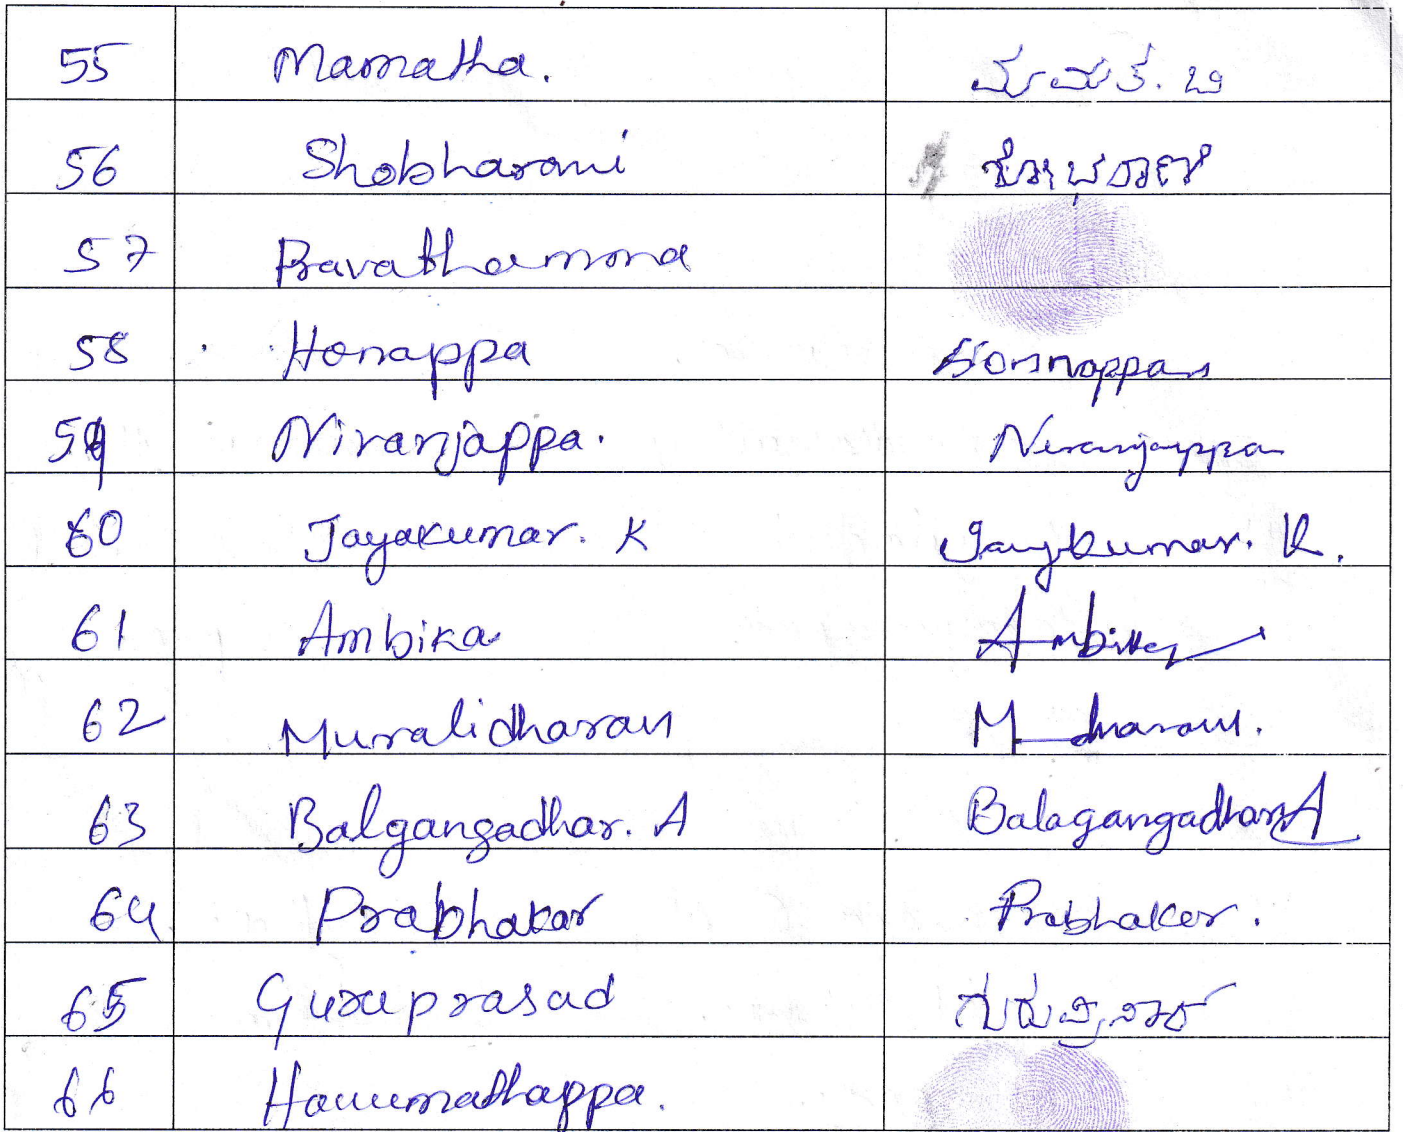 55 Mamatha. ಮಮತ. ಬಿ
56 Shobharani ಶೋಭರಾಣಿ
57 Pravathamma
58 Honappa Honnappa
59 Niranjappa. Niranjappa
60 Jayakumar. K Jaykumar. K.
61 Ambika Ambika
62 Muralidharan
63 Balgangadhar. A Balagangadhar A
64 Prabhakar Prabhaker.
65 Guruprasad ಗುರುಪ್ರಸಾದ್
66 Hanumathappa.